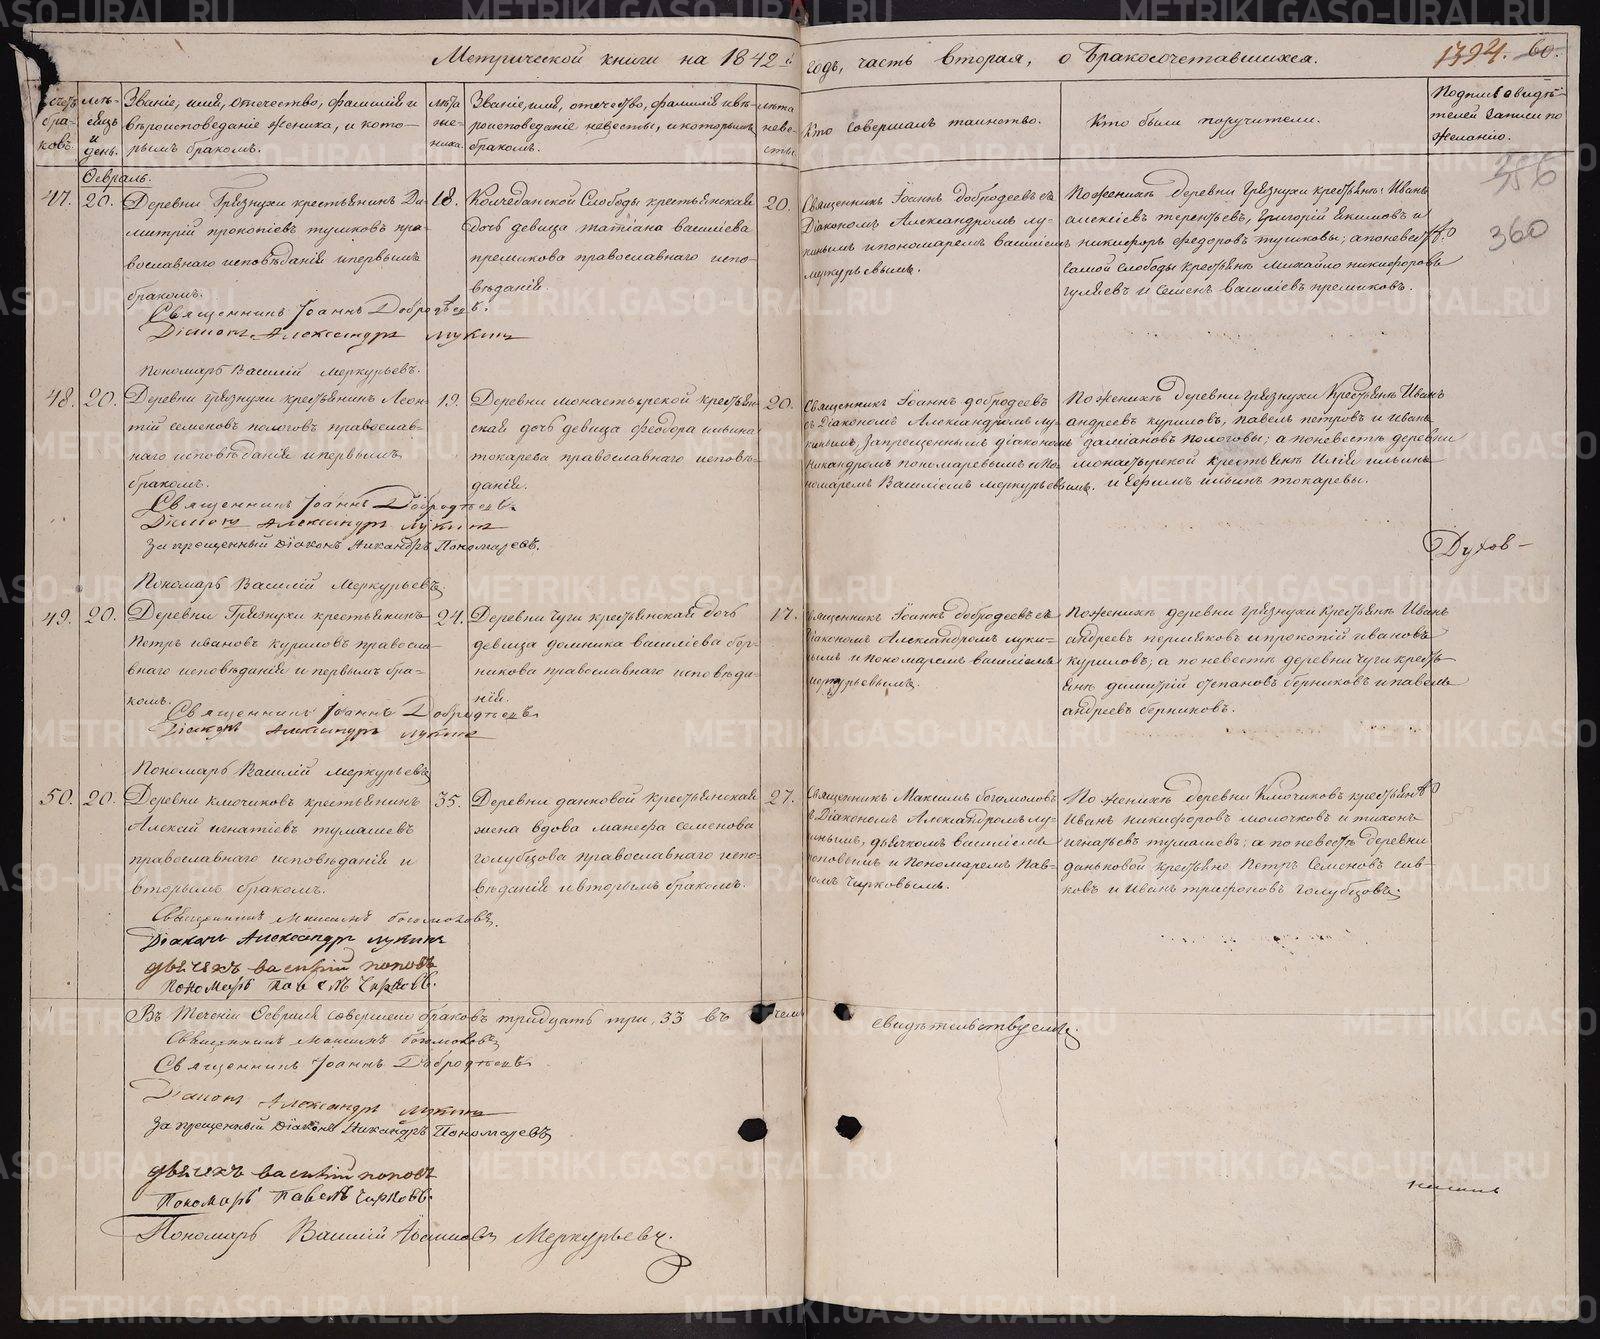 Метрической книги на 1842 й
годъ, часть вторая, о Бракосочетавшихся.
1394. 60.
356
360
Счетъ браковъ.
Мѣсяцъ и день.
Званіе, имя, отечество, фамилія и
вѣроисповеданіе жениха, и кото-
рымъ бракомъ.
лѣта же-
ниха.
Званіе, имя, отечество, фамилія и вѣ-
роисповеданіе невесты, и которымъ
бракомъ.
лѣта неве-
сты.
Кто совершалъ таинство.
Кто были поручители.
Подпись свидѣ-
телей записи по
желанію.
Февраль.
47. 20.
Деревни Грязнухи крестьянинъ Ди-
митрій прокопіевъ тушковъ пра-
вославнаго исповѣданія и первымъ
бракомъ.
18.
Колчеданской Слободы крестьянская
дочь девица татіана василіева
премикова православнаго испо-
вѣданія.
20.
Священникъ Іоаннъ Добродеевъ съ
Діакономъ Александромъ лу-
кинымъ и пономаремъ василіемъ
меркурьевымъ.
По женихѣ деревни грязнухи крестьяне: Иванъ
алексіевъ терентьевъ, григорій Екимовъ и
никифоръ федоровъ тушковы; а по невестѣ
самой слободы крестьяне Михайло никифоровъ
гуляевъ и семенъ василіевъ премиковъ.
Священникъ Іоаннъ Добродѣевъ.
Діаконъ Александръ лукинъ
Пономарь Василій Меркурьевъ.
48. 20.
Деревни грязнухи крестьянинъ Леон-
тій семеновъ пологовъ православ-
наго исповѣданія и первымъ
бракомъ.
19.
Деревни монастырской крестьян-
ская дочь девица феодора ильина
токарева православнаго исповѣ-
данія.
20.
Священникъ Іоаннъ добродеевъ
съ Діакономъ Александромъ лу-
кинымъ, Запрещеннымъ діакономъ
никандромъ пономаревымъ и по-
номаремъ Василіемъ меркурьевымъ.
По женихѣ деревни грязнухи Крестьяне Иванъ
андреевъ куриловъ, павелъ петровъ и иванъ
даміановъ пологовы; а по невестѣ деревни
монастырской крестьяне Илія ильинъ
и Ефимъ ильинъ токаревы.
Священникъ Іоаннъ Добродѣевъ.
Діаконъ Александръ лукинъ
Запрещенный Діаконъ Никандръ Пономаревъ.
Пономарь Василій Меркурьевъ.
Духов-
49. 20.
Деревни Грязнухи крестьянинъ
Петръ ивановъ куриловъ правосла-
внаго исповѣданія и первымъ бра-
комъ.
24.
Деревни Чуги крестьянская дочь
девица домника василіева бер-
никова православнаго исповѣда-
нія.
17.
Священникъ Іоаннъ добродеевъ съ
діакономъ Александромъ луки-
нымъ и пономаремъ василіемъ
меркурьевымъ.
По женихѣ деревни грязнухи крестьяне Иванъ
андреевъ пермяковъ и прокопій ивановъ
куриловъ; а по невестѣ деревни чуги кресть-
яне димитрій степановъ берниковъ и павелъ
андреевъ берниковъ.
Священникъ Іоаннъ Добродѣевъ
Діаконъ Александръ лукинъ
Пономарь Василій Меркурьевъ
50. 20.
Деревни ключиковъ крестьянинъ
Алексій игнатіевъ тумашевъ
православнаго исповѣданія и
вторымъ бракомъ.
35.
Деревни данковой крестьянская
жена вдова манефа семенова
голубцова православнаго испо-
вѣданія и вторымъ бракомъ.
27.
Священникъ Максимъ богомоловъ
съ Діакономъ Александромъ лу-
кинымъ, дьячкомъ василіемъ
поповымъ и Пономаремъ Пав-
ломъ Чирковымъ.
По женихѣ деревни Ключиковъ крестьяне
Иванъ никифоровъ молочковъ и тихонъ
игнатьевъ тумашевъ; а по невестѣ деревни
даньковой крестьяне Петръ Семеновъ сив-
ковъ и Иванъ трифоновъ голубцовъ.
Священникъ Максимъ богомоловъ.
Діаконъ Александръ лукинъ
дьячекъ василій поповъ
пономарь павелъ Чирковъ.
Въ Теченіи Февраля совершено браковъ тридцать три, 33 въ чемъ
свидѣтельствуемъ.
Священникъ Максимъ богомоловъ
Священникъ Іоаннъ Добродѣевъ
Діаконъ Александръ лукинъ
Запрещенный Діаконъ Никандръ Пономаревъ
дьячекъ василій поповъ
Пономарь павелъ Чирковъ.
Пономарь Василій Меркурьевъ.